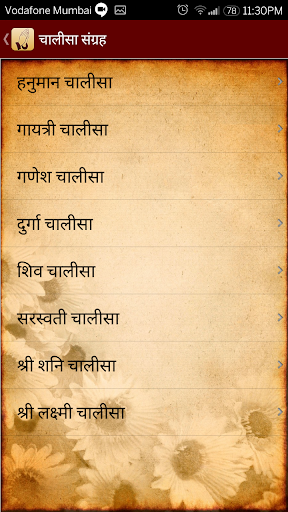 Vodafone Mumbai 78 11:30PM
चालीसा संग्रह
हनुमान चालीसा
गायत्री चालीसा
गणेश चालीसा
दुर्गा चालीसा
शिव चालीसा
सरस्वती चालीसा
श्री शनि चालीसा
श्री लक्ष्मी चालीसा